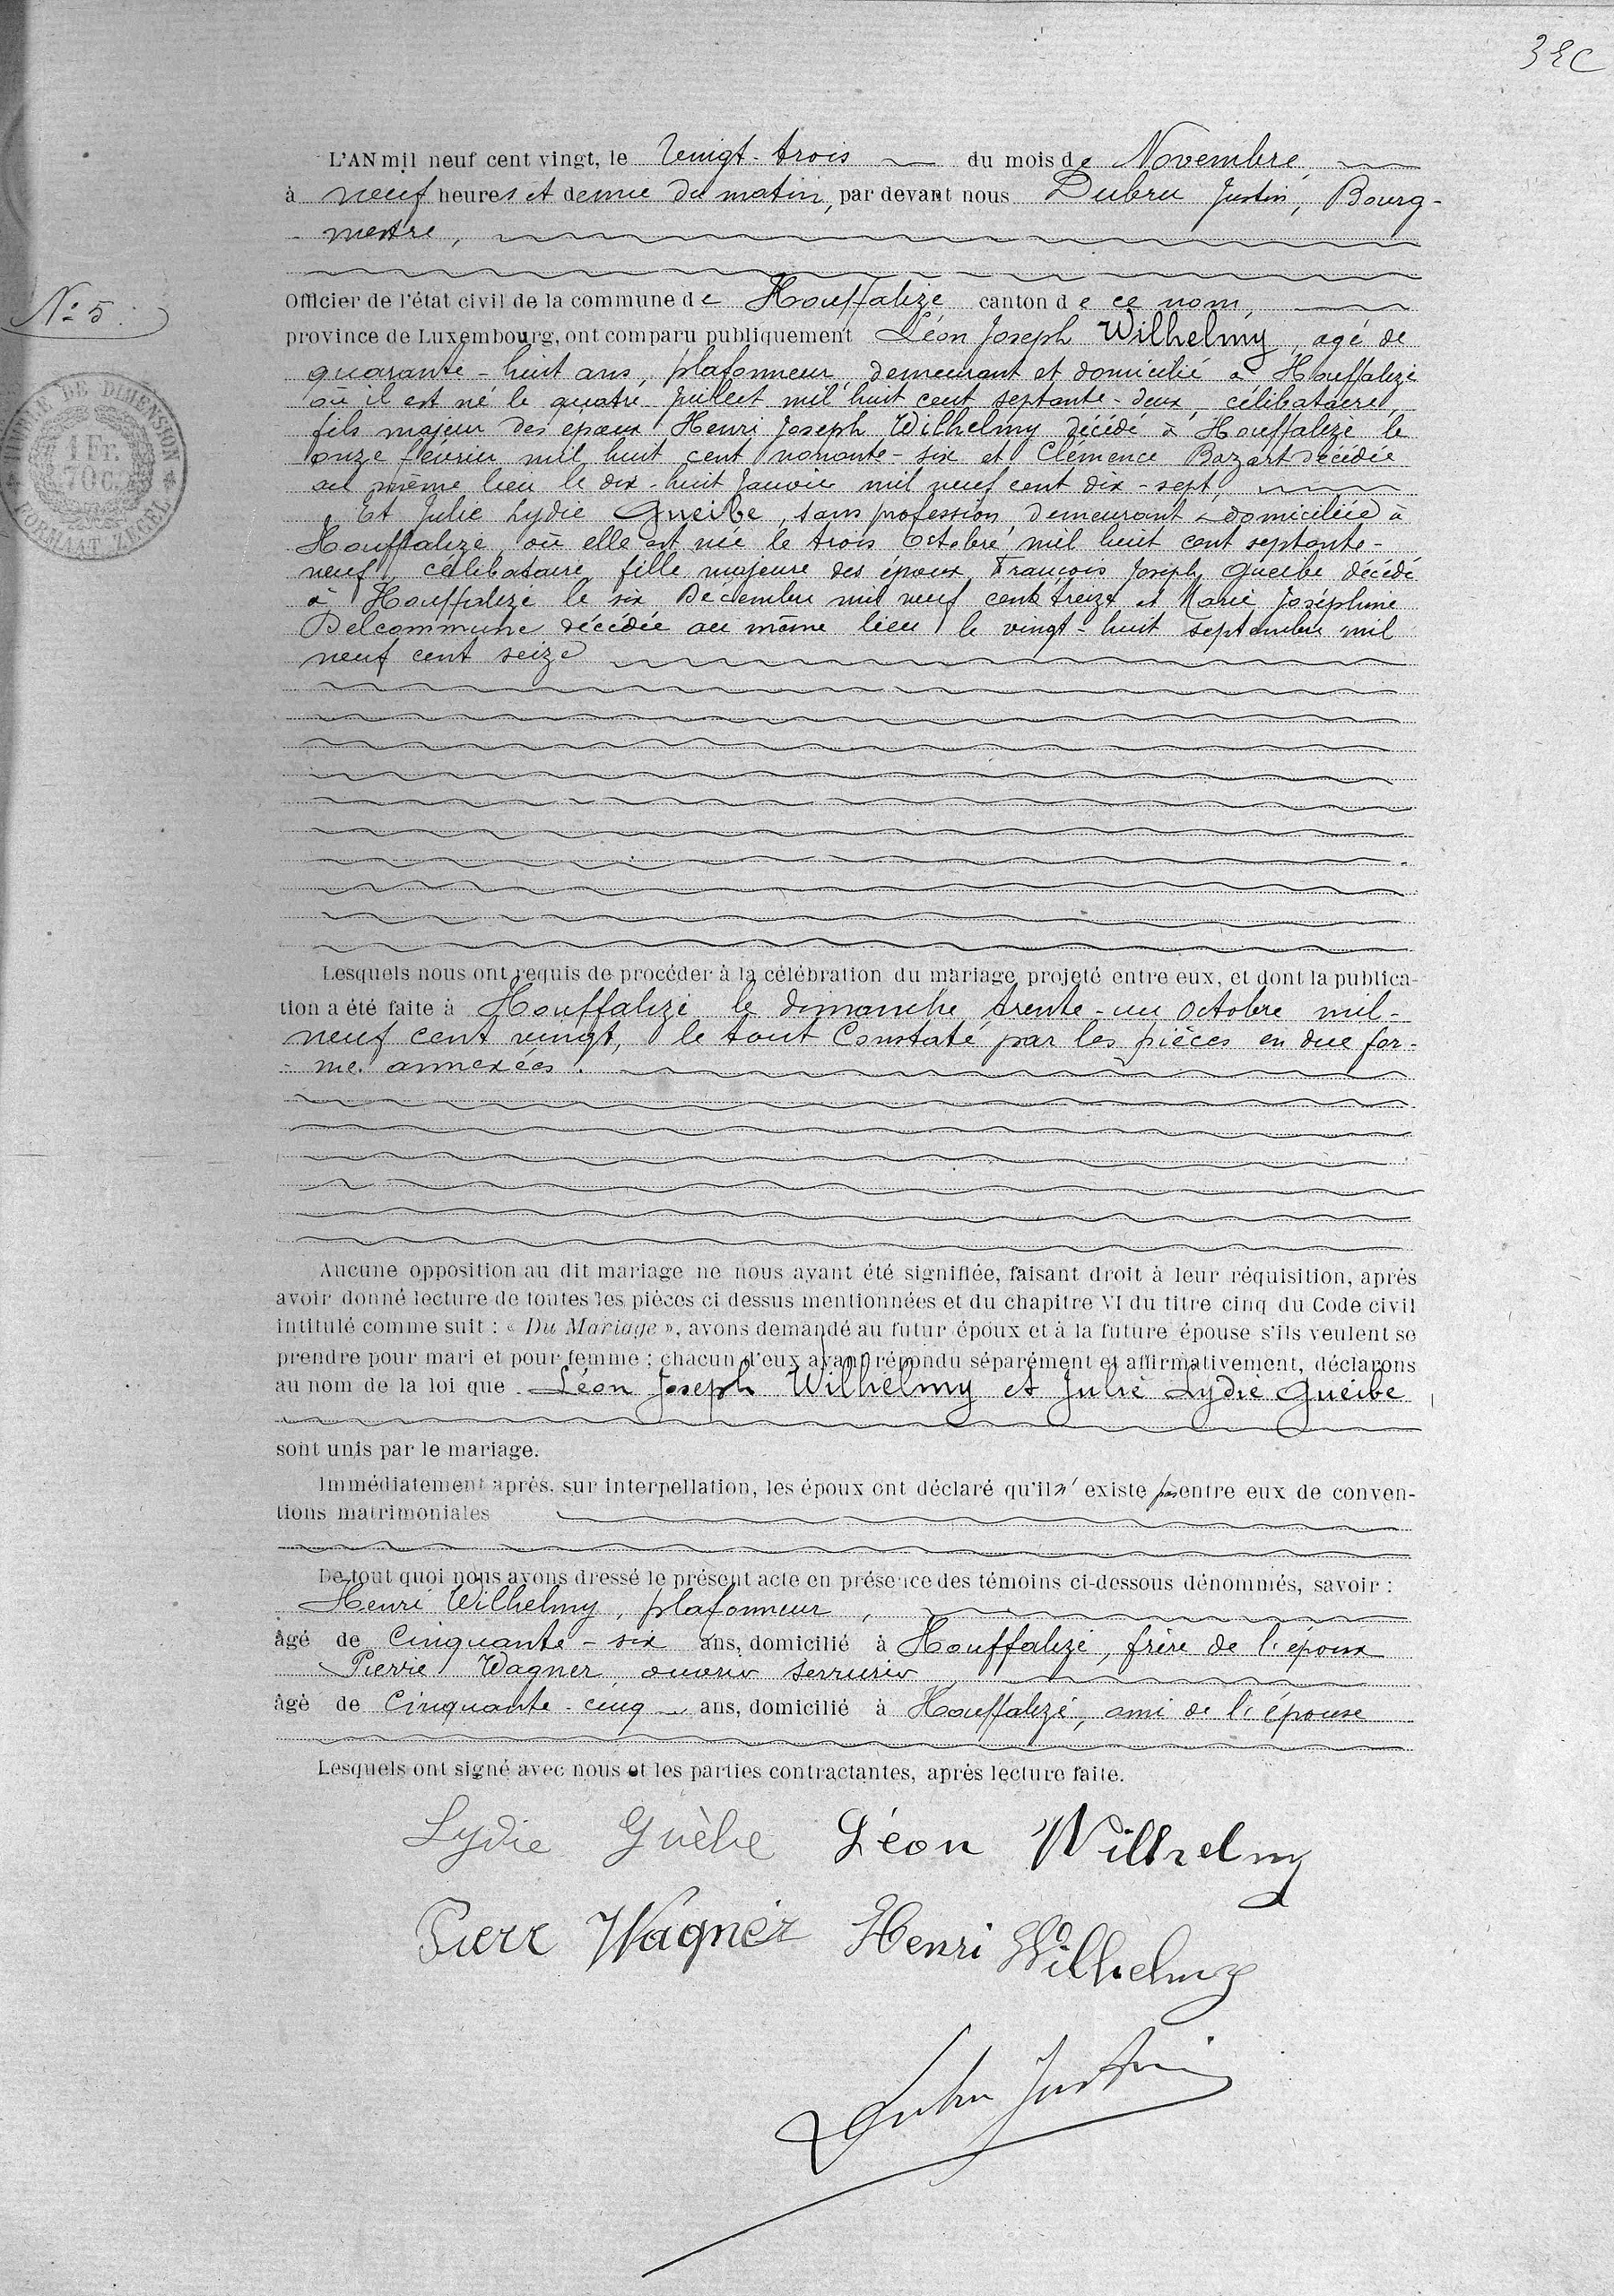 L'AN mil neuf cent vingt, le Vingt-trois du mois de Novembre,
à neuf heures et demie du matin, par devant nous Dubru Justin, Bourg-
mestre,
N° 5.
Officier de l'état civil de la commune de Houffalize canton de ce nom,
province de Luxembourg, ont comparu publiquement Léon Joseph Wilhelmy, agé de
quarante-huit ans, plafonneur, demeurant et domicilié à Houffalize
où il est né le quatre Juillet mil huit cent septante-deux, célibataire,
fils majeur des époux Henri Joseph Wilhelmy décédé à Houffalize le
onze février mil huit cent nonante-six et Clémence Bazart décédée
au même lieu le dix-huit Janvier mil neuf cent dix-sept,
Et Julie Lydie Gueibe, sans profession, demeurant & domiciliée à
Houffalize, où elle est née le trois Octobre mil huit cent septante-
neuf, célibataire, fille majeure des époux François Joseph Gueibe décédé
à Houffalize le six Décembre mil neuf cent treize et Marie Joséphine
Delcommune décédée au même lieu le vingt-huit septembre mil
neuf cent seize
TIMBRE DE DIMENSION
1 Fr.
70 c.
FORMAAT ZEGEL
Lesquels nous ont requis de procéder à la célébration du mariage projeté entre eux, et dont la publica-
tion a été faite à Houffalize le dimanche trente-un Octobre mil-
neuf cent vingt, le tout Constaté par les pièces en due for-
me annexées.
Aucune opposition au dit mariage ne nous ayant été signifiée, faisant droit à leur réquisition, après
avoir donné lecture de toutes les pièces ci dessus mentionnées et du chapitre VI du titre cinq du Code civil
intitulé comme suit : « Du Mariage », avons demandé au futur époux et à la future épouse s'ils veulent se
prendre pour mari et pour femme ; chacun d'eux ayant répondu séparément et affirmativement, déclarons
au nom de la loi que Léon Joseph Wilhelmy et Julie Lydie Gueibe
sont unis par le mariage.
Immédiatement après, sur interpellation, les époux ont déclaré qu'il n'existe pas entre eux de conven-
tions matrimoniales
De tout quoi nous avons dressé le présent acte en présence des témoins ci-dessous dénommés, savoir :
Henri Wilhelmy, plafonneur,
âgé de Cinquante-six ans, domicilié à Houffalize, frère de l'époux
Pierre Wagner, ouvrier serrurier
âgé de Cinquante-cinq ans, domicilié à Houffalize, ami de l'épouse
Lesquels ont signé avec nous et les parties contractantes, après lecture faite.
Lydie Guèbe Léon Wilhelmy
Pierr Wagner Henri Wilhelmy
Dubru Justin